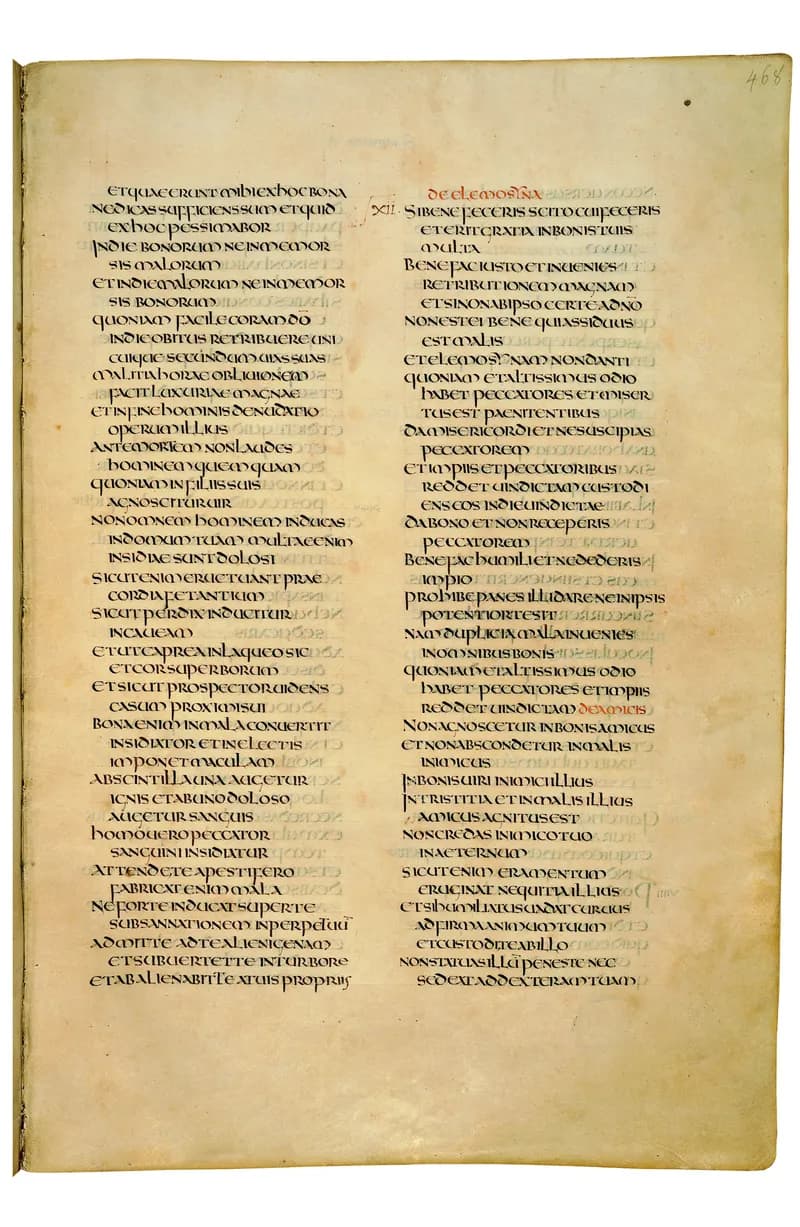 468
et quae erunt mihi ex hoc bona
ne dicas sufficiens sum et quid
ex hoc pessimabor
In die bonorum ne inmemor
sis malorum
et in die malorum ne inmemor
sis bonorum
quoniam facile coram dō
in die obitus retribuere uni
cuique secundum uias suas
malitia horae obliuionem
facit luxuriae magnae
et in fine hominis denudatio
operum illius
ante mortem non laudes
hominem quemquam
quoniam in filiis suis
agnoscitur uir
non omnem hominem inducas
in domum tuam multae enim
insidiae sunt dolosi
sicut enim eructuant prae
cordia fetantium
sicut perdix inducitur
in caueam
et ut caprea in laqueo sic
et cor superborum
et sicut prospector uidens
casum proximi sui
bona enim in mala conuertit
insidiator et in electis
imponet maculam
ab scintilla una augetur
ignis et ab uno doloso
augetur sanguis
homo uero peccator
sanguini insidiatur
attende te a pestifero
fabricat enim mala
ne forte inducat super te
subsannationem in perpetuū
admitte ad te alienigenam
et subuertet te in turbore
et abalienabit te a tuis propriis
de elemosyna
XII
Si bene feceris scito cui feceris
et erit gratia in bonis tuis
multa
Benefac iusto et inuenies
retributionem magnam
et si non ab ipso certe a dno
non est ei bene qui assiduus
est malis
et elemosynam non danti
quoniam et altissimus odio
habet peccatores et miser
tus est paenitentibus
da misericordi et ne suscipias
peccatorem
et impiis et peccatoribus
reddet uindictam custodi
ens eos in die uindictae
da bono et non receperis
peccatorem
Benefac humili et ne dederis
impio
prohibe panes illi dare ne in ipsis
potentior te sit
nam duplicia mala inuenies
in omnibus bonis
quoniam et altissimus odio
habet peccatores et impiis
reddet uindictam de amicis
Non agnoscetur in bonis amicus
et non abscondetur in malis
inimicus
In bonis uiri inimici illius
In tristitia et in malis illius
amicus agnitus est
non credas inimico tuo
in aeternum
sicut enim eramentum
eruginat nequitia illius
et si humiliatus uadat curuus
adfirma animum tuum
et custodi te ab illo
non statuas illū penes te nec
sedeat ad dexteram tuam